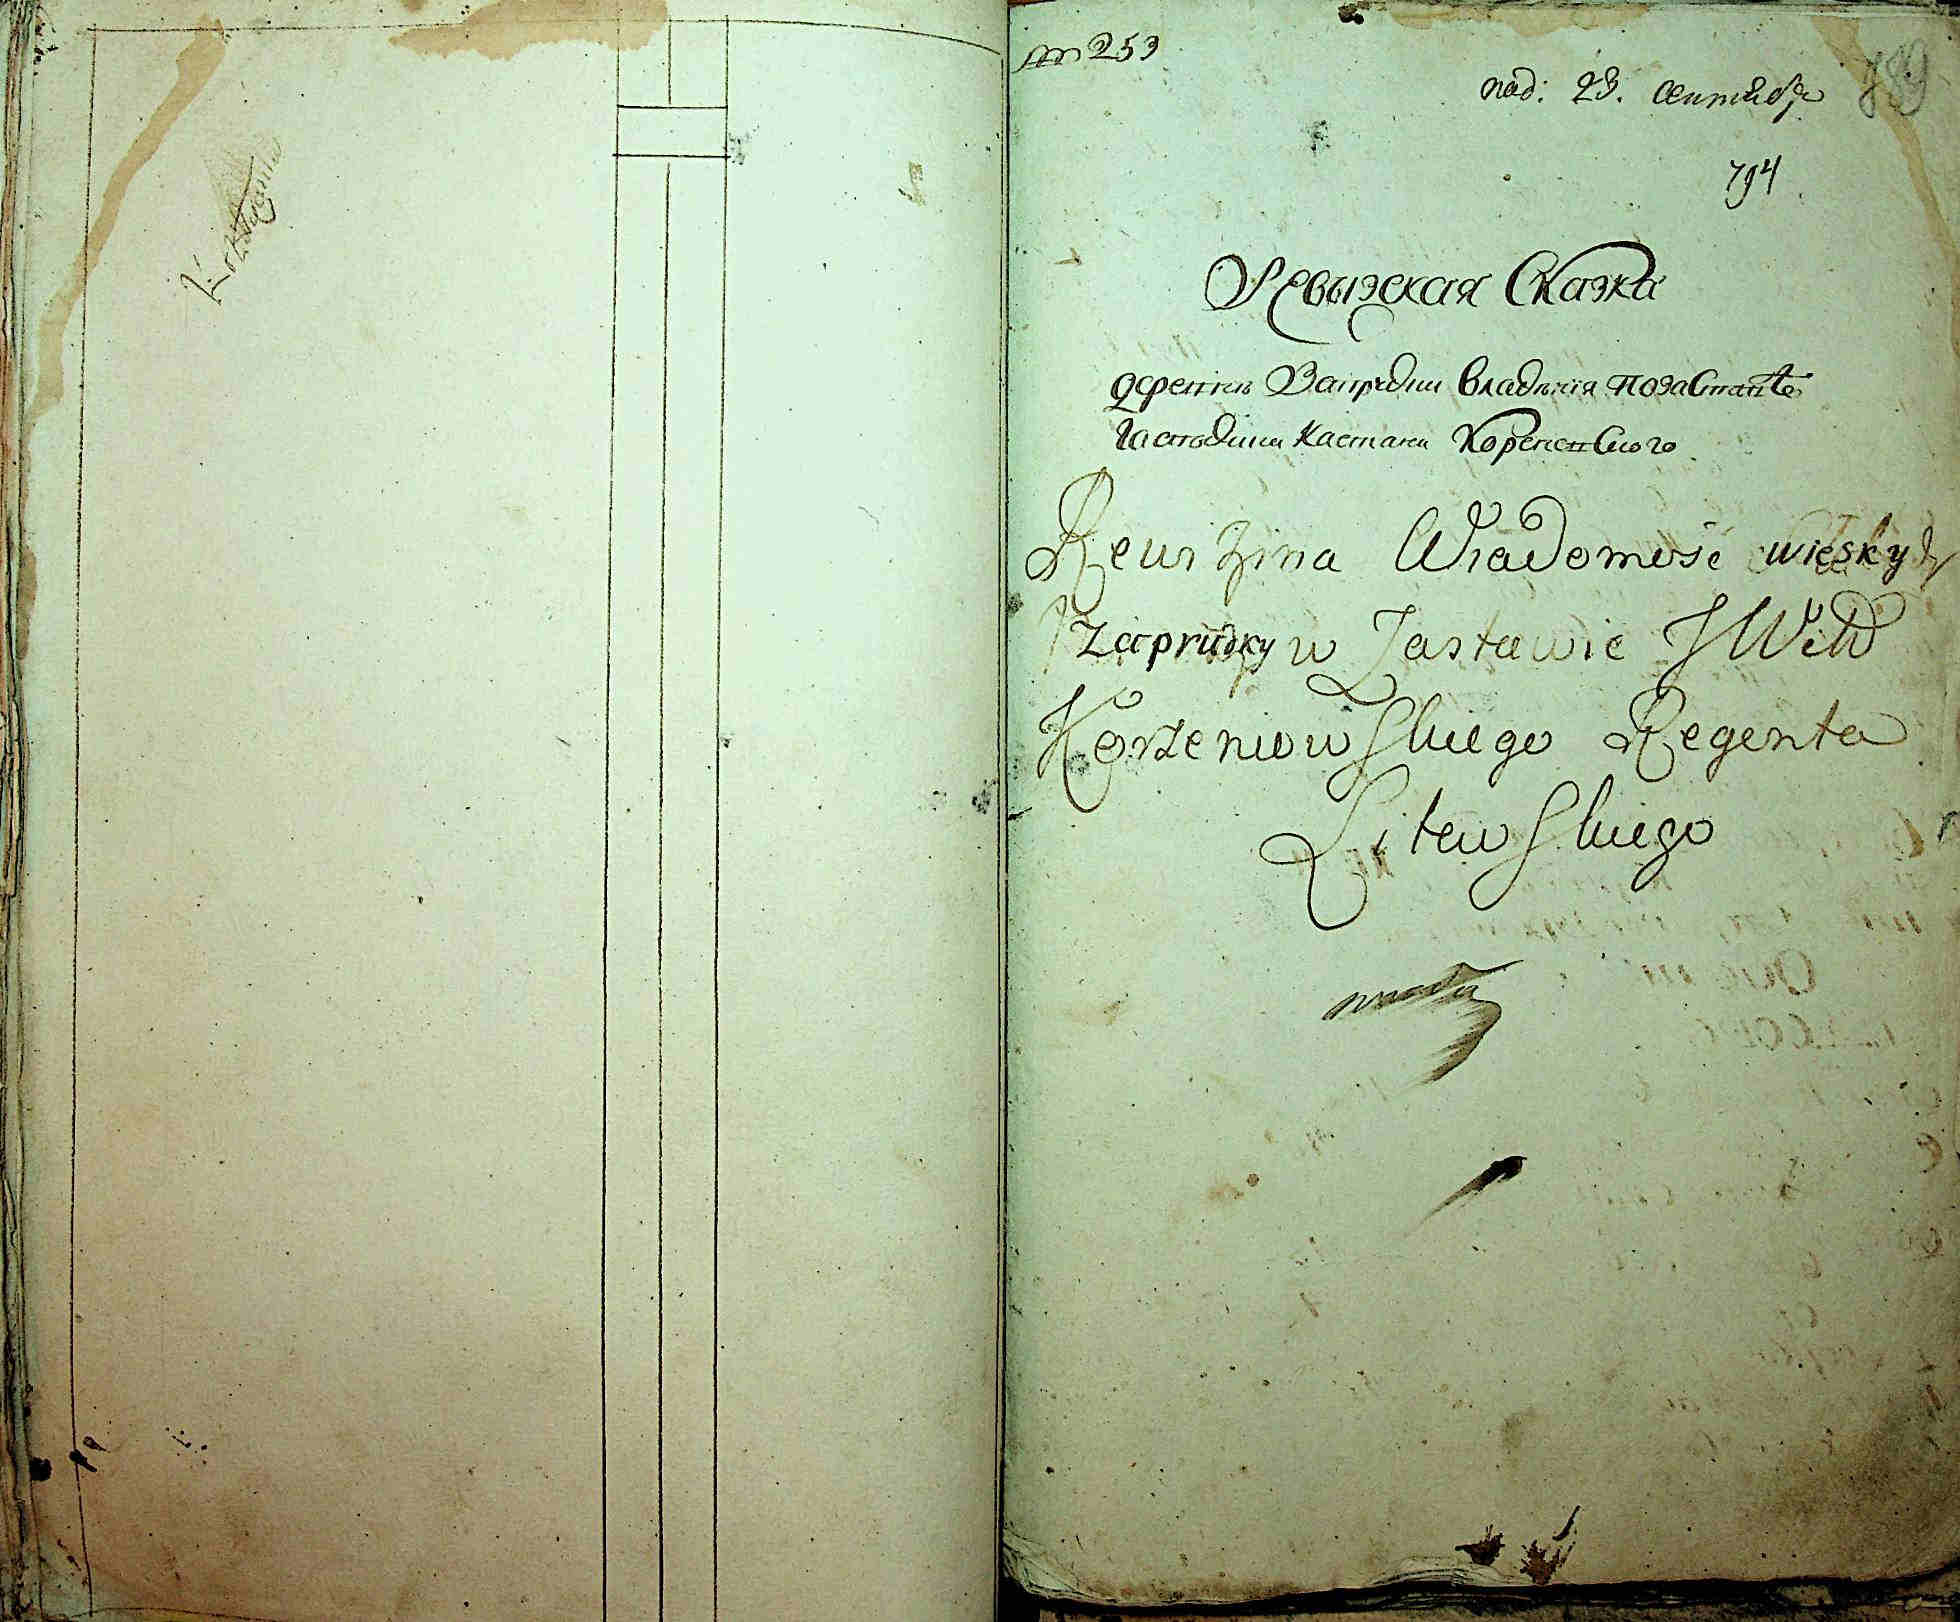 № 253
под: 23. сентября
794
889
Ревызская Сказка
деревни Запрудки владения позаставе
Господина Кастана Кореневского
Rewizina Wiadomosc wiesky
Zaprudky w Zastawie J W
Korzeniowskiego Regenta
Litewskiego